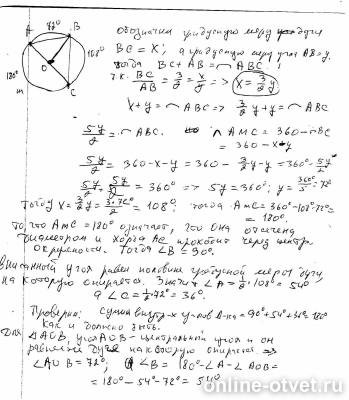 A 72° B
108°
O
180°
m
C
обозначим градусную меру дуги
BC = X, а градусную меру дуги AB = y.
тогда BC + AB = ◠ABC.
т.к. BC/AB = 3/2 = x/y => x = 3/2 y
x + y = ◠ABC => 3/2 y + y = ◠ABC
5y/2 = ◠ABC. ◠AmC = 360 - ◠ABC
= 360 - x - y
5y/2 = 360 - x - y = 360 - 3/2 y - y = 360° - 5y/2
5y/2 + 5y/2 = 360° => 5y = 360°; y = 360°/5 = 72°
Тогда x = 3/2 y = 3·72°/2 = 108°; тогда ◠AmC = 360° - 108° - 72° =
= 180°.
То, что AmC = 180° означает, что она отсечена
диаметром и хорда AC проходит через центр
окружности. Тогда ∠B = 90°.
Вписанный угол равен половине градусной меры дуги,
на которую опирается. Значит ∠A = 1/2 · 108° = 54°
а ∠C = 1/2 · 72° = 36°.
Проверка: сумма внутр-х углов Δ-ка = 90° + 54° + 36° = 180°
как и должно быть.
Для ΔAOB, угол AOB - центральный угол и он
равен дуге на которую опирается =>
∠AOB = 72°; ∠B = 180° - ∠A - ∠AOB =
= 180° - 54° - 72° = 54°
online-otvet.ru